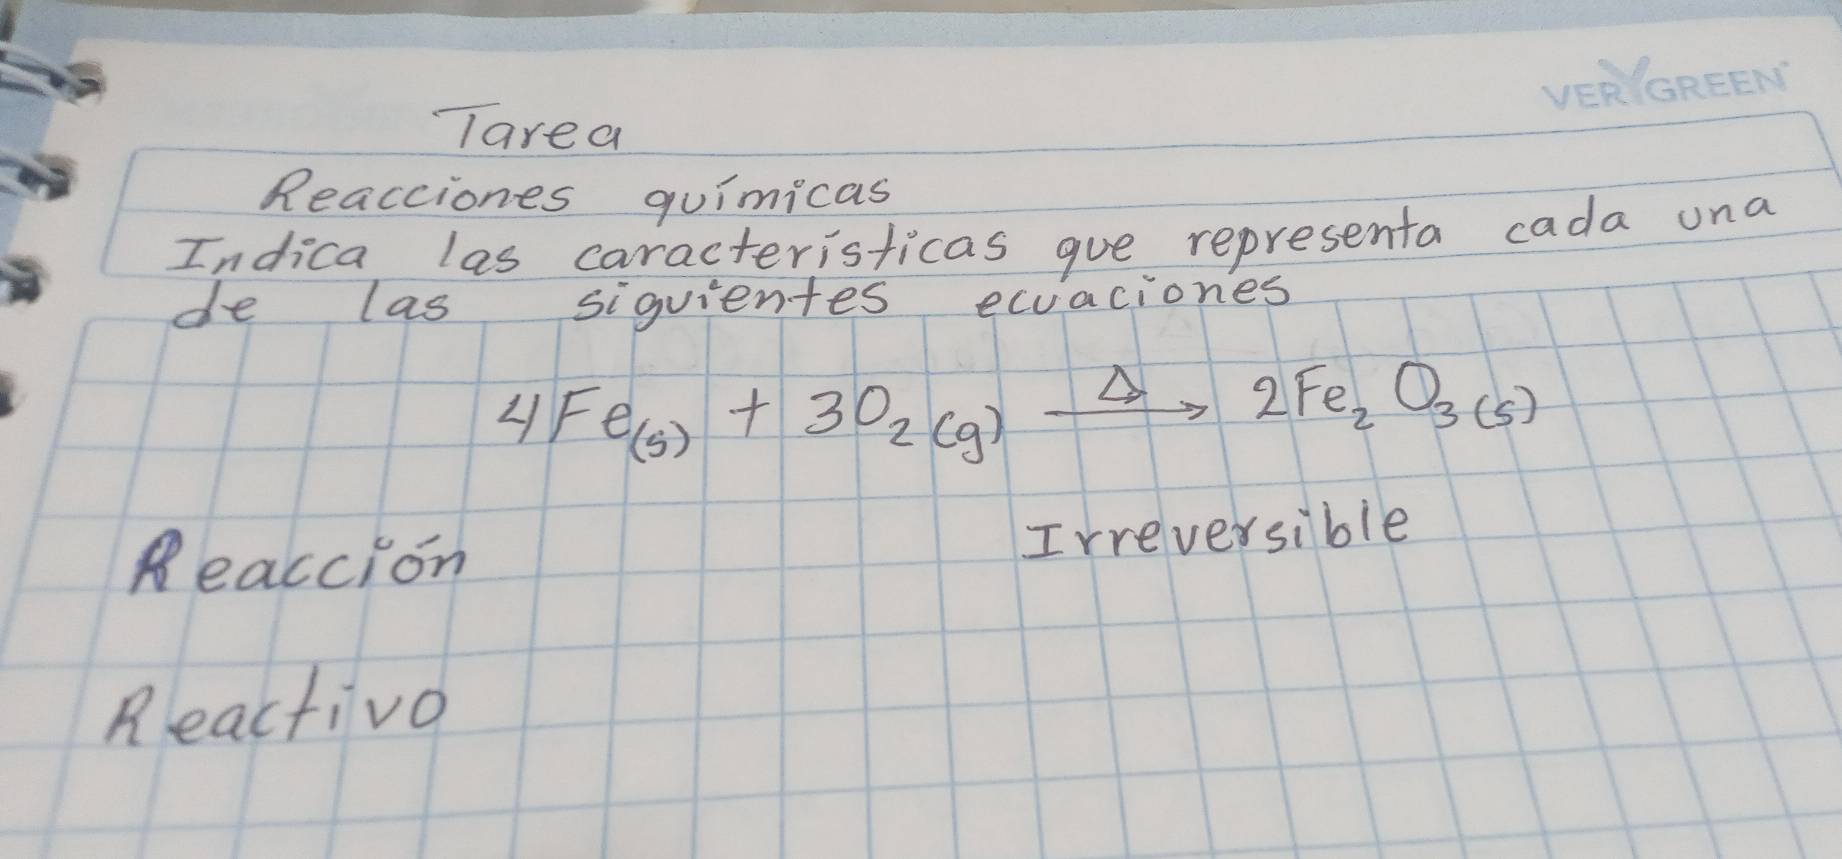 VERYGREEN
Tarea
Reacciones químicas
Indica las características que representa cada una
de las siguientes ecuaciones
4Fe(s) + 3O₂(g) —Δ→ 2Fe₂O₃(s)
Reacción Irreversible
Reactivo